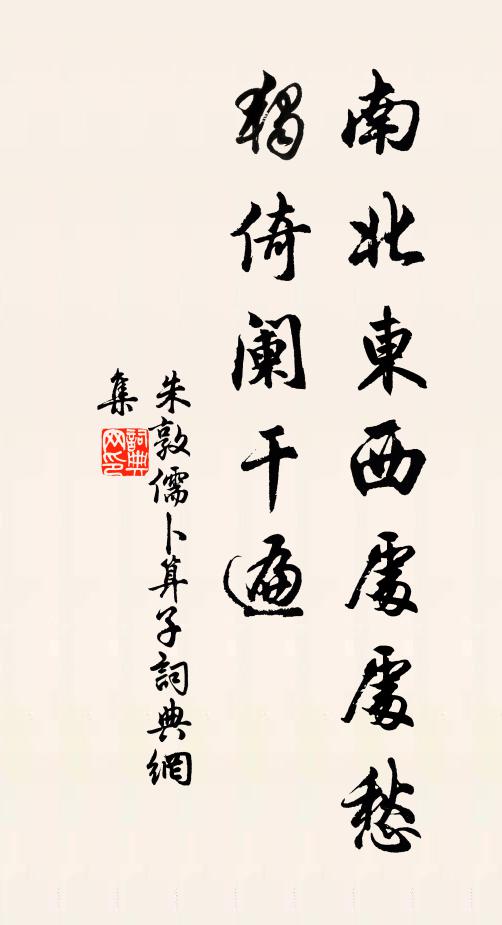 南北東西處處愁
獨倚闌干遍
朱敦儒卜算子詞典網
集
詞典網印